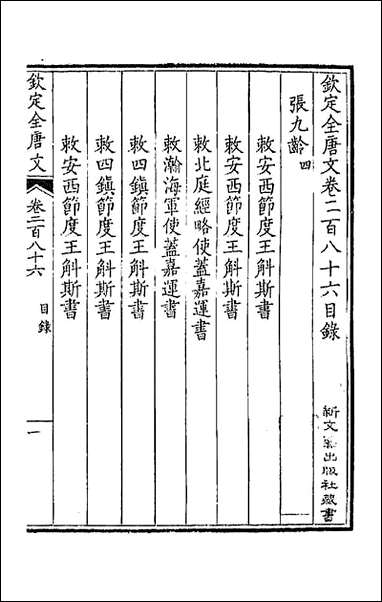 欽定全唐文卷二百八十六目錄
張九齡四
敕安西節度王斛斯書
敕安西節度王斛斯書
敕北庭經略使蓋嘉運書
敕瀚海軍使蓋嘉運書
敕四鎮節度王斛斯書
敕四鎮節度王斛斯書
敕安西節度王斛斯書
欽定全唐文
卷二百八十六
目錄
一
新文豐出版社藏書